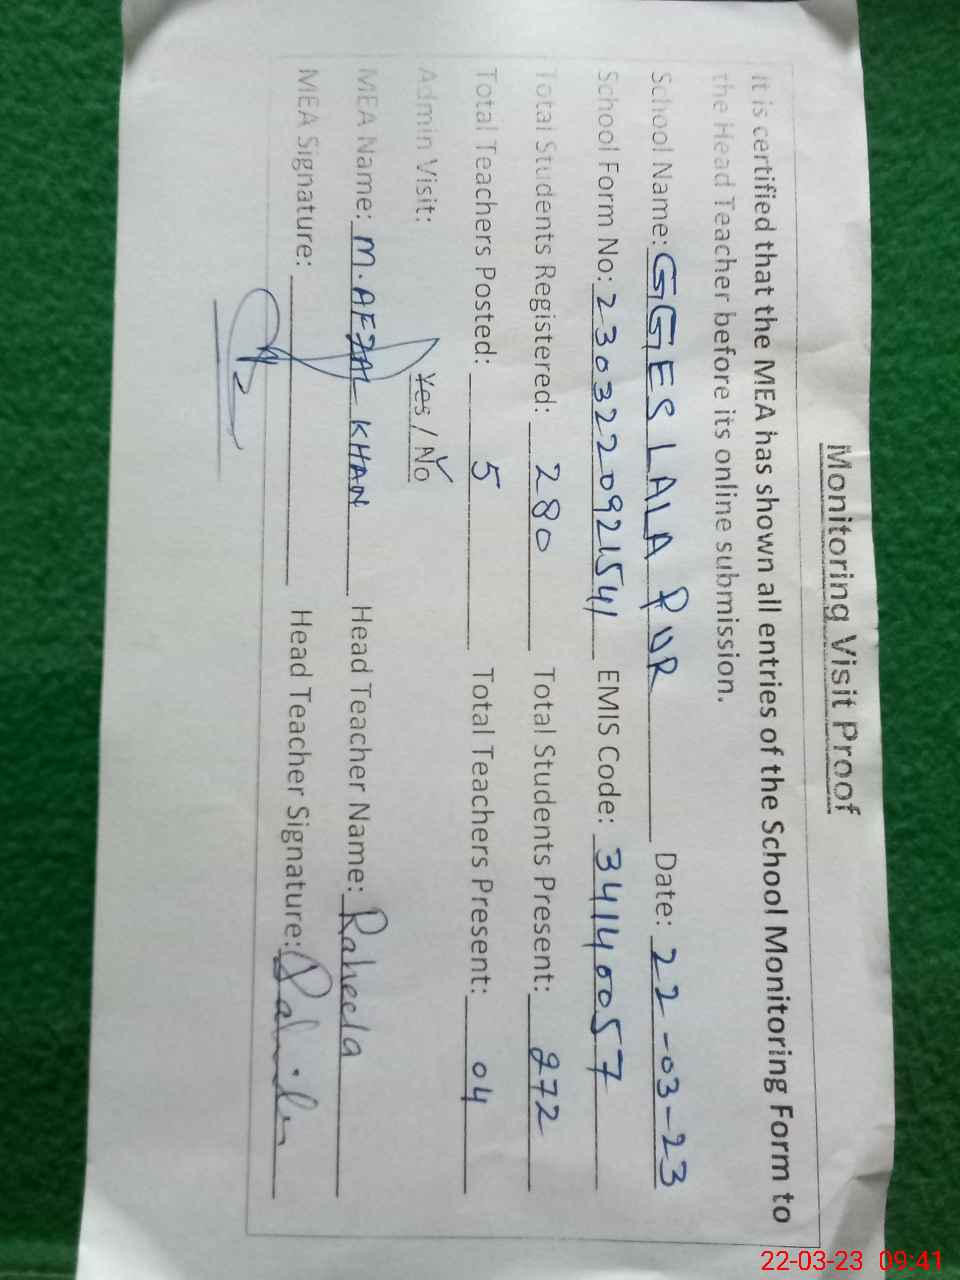 Monitoring Visit Proof
It is certified that the MEA has shown all entries of the School Monitoring Form to
the Head Teacher before its online submission.
School Name: GGES LALA PUR Date: 22-03-23
School Form No: 2303220921541 EMIS Code: 34140057
Total Students Registered: 280 Total Students Present: 272
Total Teachers Posted: 5 Total Teachers Present: 04
Admin Visit: Yes / No
MEA Name: M. AFZAL KHAN Head Teacher Name: Raheela
MEA Signature: Head Teacher Signature:
22-03-23 09:41